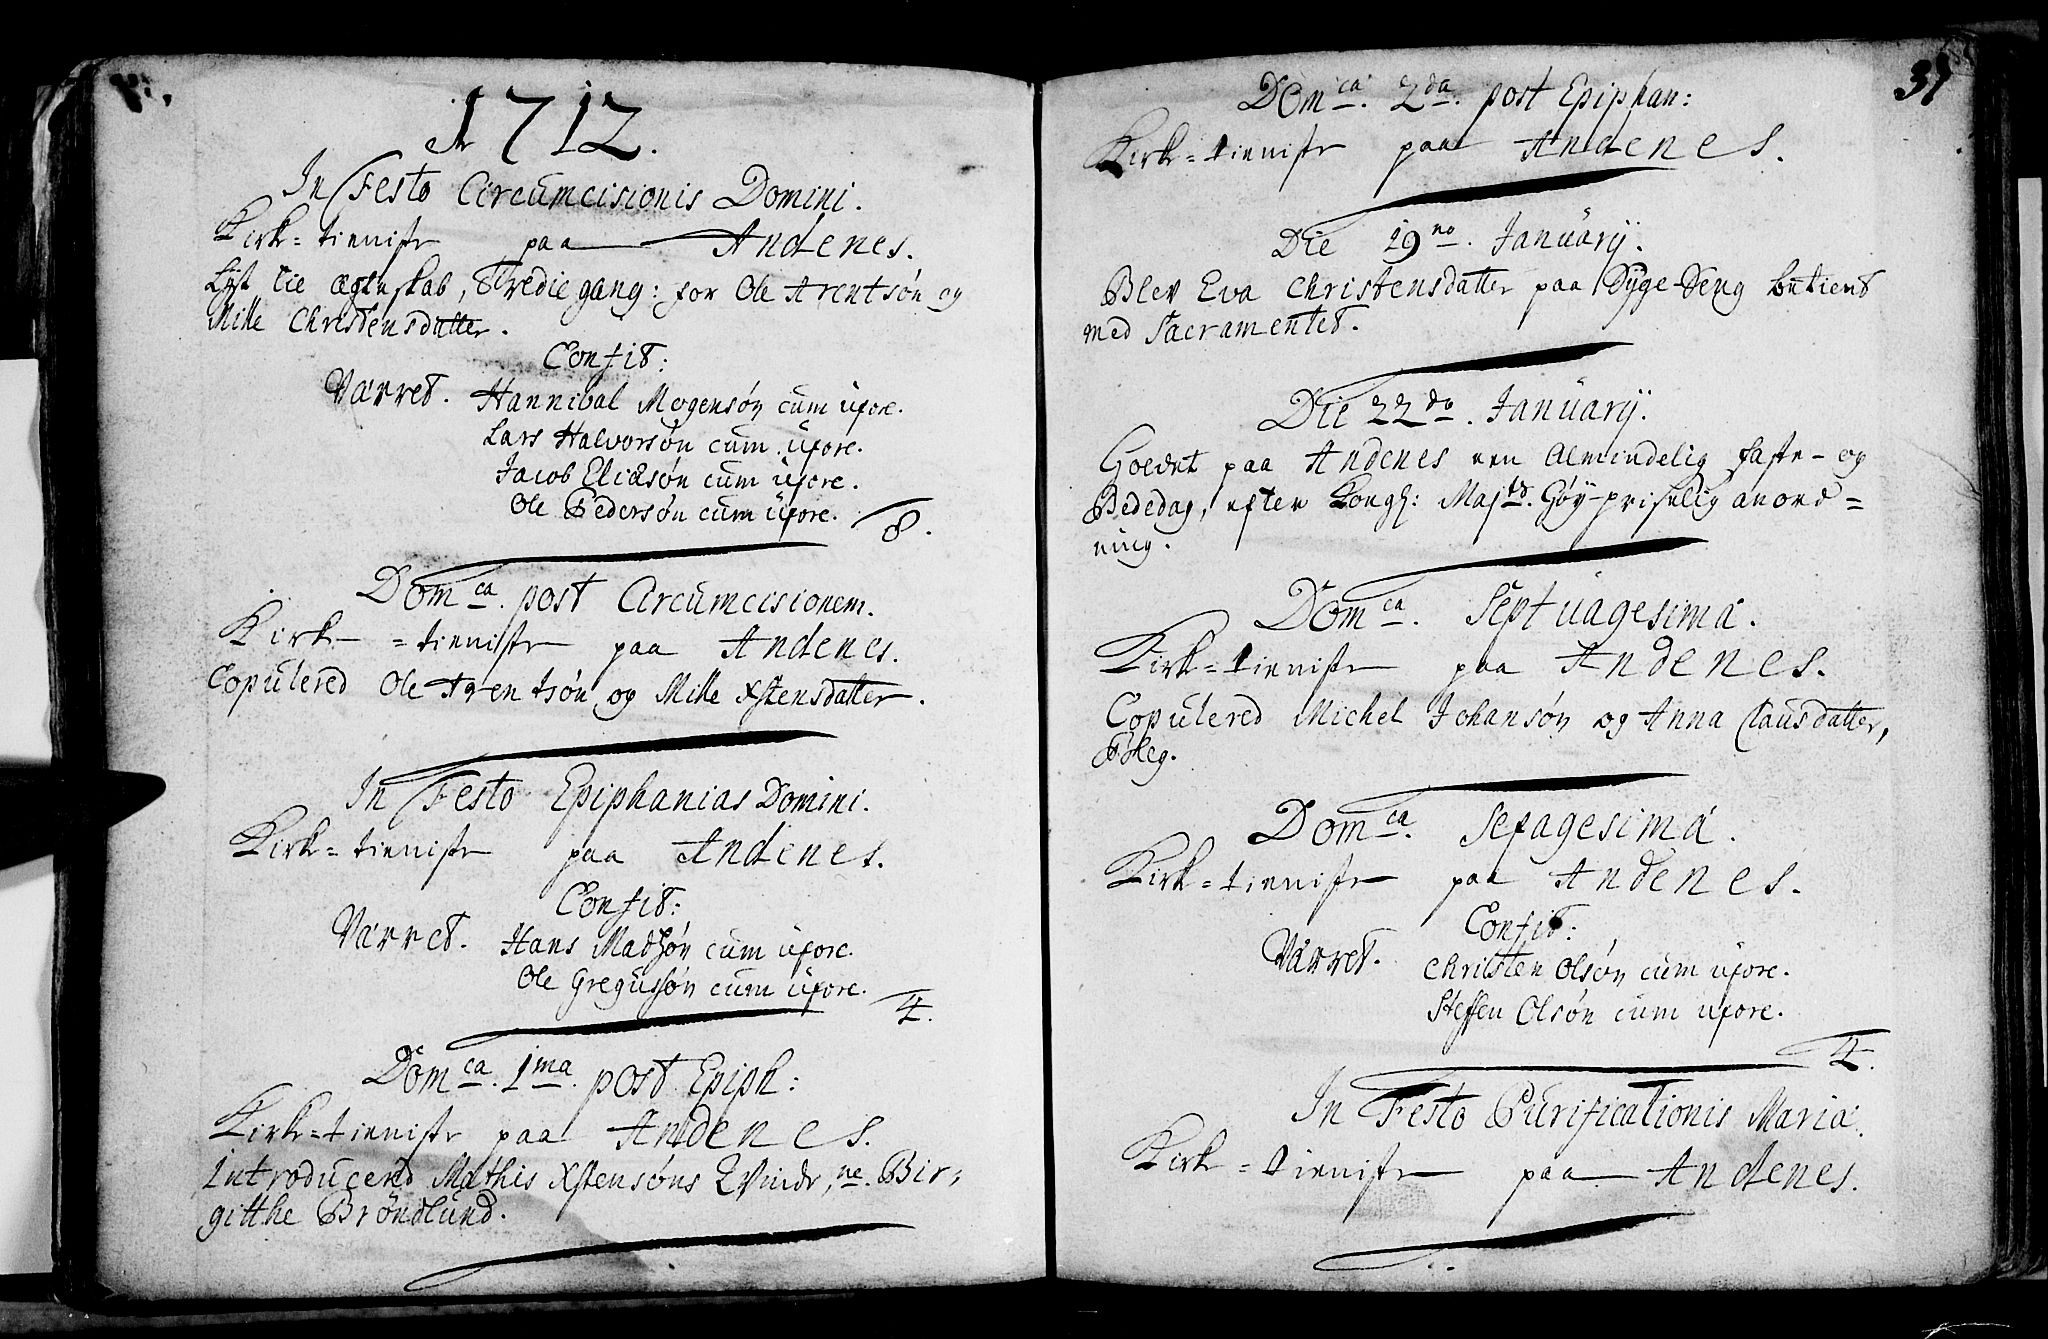 1712.
In Festo Circumcisionis Domini.
Kirk=tieniste paa Andenes.
Lyst til ægteskab, Tredie gang: for Ole Arentsøn og
Mille Christensdatter.
Confit:
Værret. Hannibal Mogensøn cum uxore.
Lars Halvorsøn cum uxore.
Jacob Eliæsøn cum uxore.
Ole Pedersøn cum uxore.
8.
Dom ca. post Circumcisionem.
Kirk-=tieniste paa Andenes.
Copulered Ole Arentsøn og Mille Xstensdatter.
In Festo Epiphanias Domini.
Kirk=tieniste paa Andenes.
Confit:
Værret. Hans Madsøn cum uxore.
Ole Gregussøn cum uxore.
4.
Dom ca. 1 ma. post Epiph:
Kirk=tieniste paa Andenes.
Introducerd Mathis Xstensøns Qvinde, ne. Bir=
githe Brøndlund.
37
Dom ca. 2 da. post Epiphan:
Kirk=tieniste paa Andenes.
Die 19 no. Januarij.
Blev Eva Christensdatter paa Syge-Seng betient
med Sacramentet.
Die 22 do. Januarij.
Holdet paa Andenes een Almindelig faste- og
Bededag, efter Kongl: Maj ts. Høy-priselig anord=
ning.
Dom ca. Septuagesima.
Kirk=tieniste paa Andenes.
Copulered Michel Johansøn og Anna Clausdatter,
Dom ca. Sexagesima.
Kirk=tieniste paa Andenes.
Confit:
Værret. Christen Olsøn cum uxore.
Steffen Olsøn cum uxore.
4.
In Festo Purificationis Mariæ.
Kirk=tieniste paa Andenes.